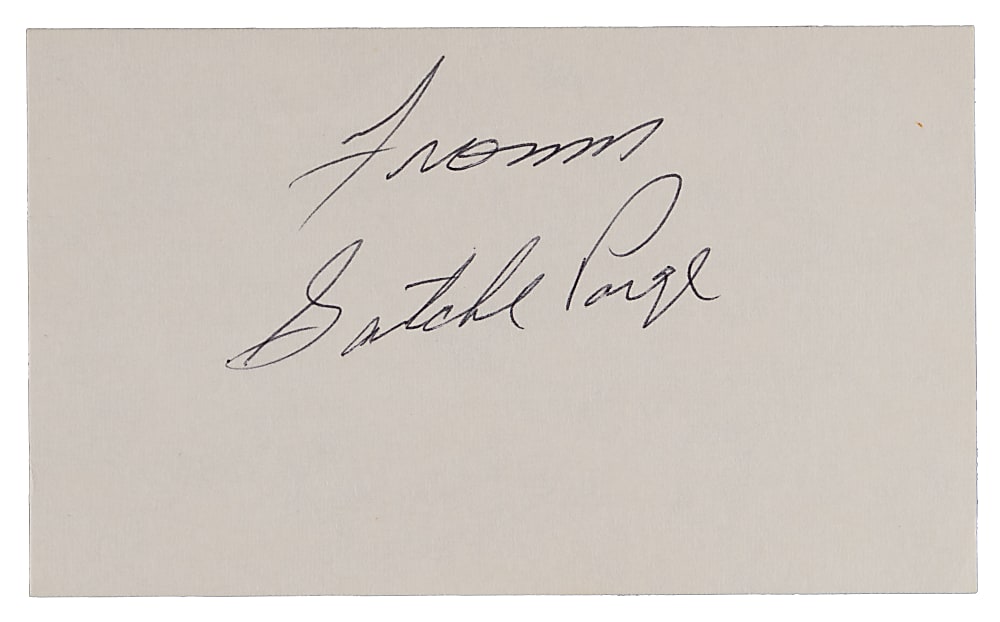 From
Satchel Paige